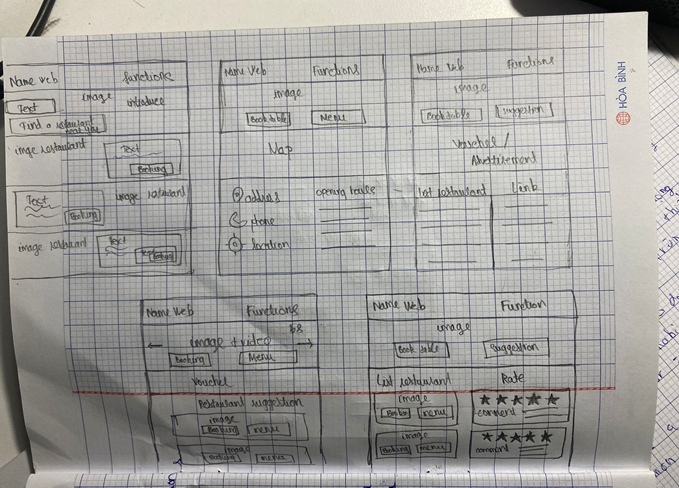 Name web functions
image introduce
Text
Find a restaurant near you
imge restaurant
Text
Booking
Text
Booking
image restaurant
image restaurant
Text
Booking
Name Web Functions
image
Book table Menu
Map
address
phone
location
opening
Name Web Functions
image
Book table suggestion
Voucher /
Advertisement
List restaurant Link
HÒA BÌNH
Name Web Functions
image + video
Booking Menu
Voucher
Restaurant suggestion
image
Booking menu
image
Booking menu
Name Web Function
image
Book table Suggestion
List restaurant Rate
image
Booking menu
comment
image
Booking menu
comment